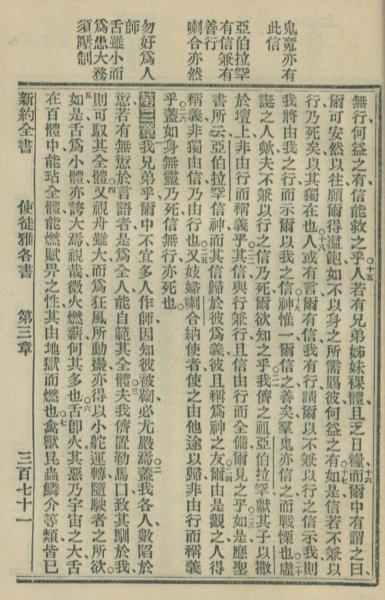 鬼魔亦有
此信
亞伯拉罕
有信兼有
善行
喇合亦然
勿好爲人
師
舌雖小而
爲患大務
須壓制
無行何益之有信能救之乎人若有兄弟姊妹裸體且乏日糧而爾中有謂之曰
十五
十六
爾可安然以往願爾得溫飽如不以身之所需賜彼何益之有如是信若不兼以
十七
行乃死矣以其獨在也人或有言爾有信我有行請爾以不兼以行之信示我則
十八
我將由我之行而示爾以我之信神惟一爾信之善矣羣鬼亦信之而戰慄也虛
十九
二十
誕之人歟夫不兼以行之信乃死爾欲知之乎我儕之祖亞伯拉罕獻其子以撒
二一
於壇上非由行而稱義乎其信與行兼行且信由行而全備爾見之乎如是應聖
二二
二三
書所云亞伯拉罕信神而其信歸於彼爲義彼且稱爲神之友爾由是觀之人得
二四
稱義非獨由信乃由行也又妓婦喇合納使者使之由他途以歸非由行而稱義
二五
乎蓋如身無靈乃死信無行亦死也
二六
第三章我兄弟乎爾中不宜多人作師因知彼被鞫必尤嚴焉蓋我各人數陷於
二
愆若有無愆於言語者是爲全人能自範其全體夫我儕置勒馬口致其馴於我
三
則可馭其全體又視舟雖大而爲狂風所動盪亦得以小舵運轉隨駛者之所欲
四
如是舌爲小體亦誇大焉視哉微火燃薪何其多也舌卽火其惡乃宇宙之大舌
五
六
在百體中能玷全體能燃賦畀之性其由地獄而燃也禽獸昆蟲鱗介等類皆已
七
新約全書
使徒雅各書
第三章
三百七十一